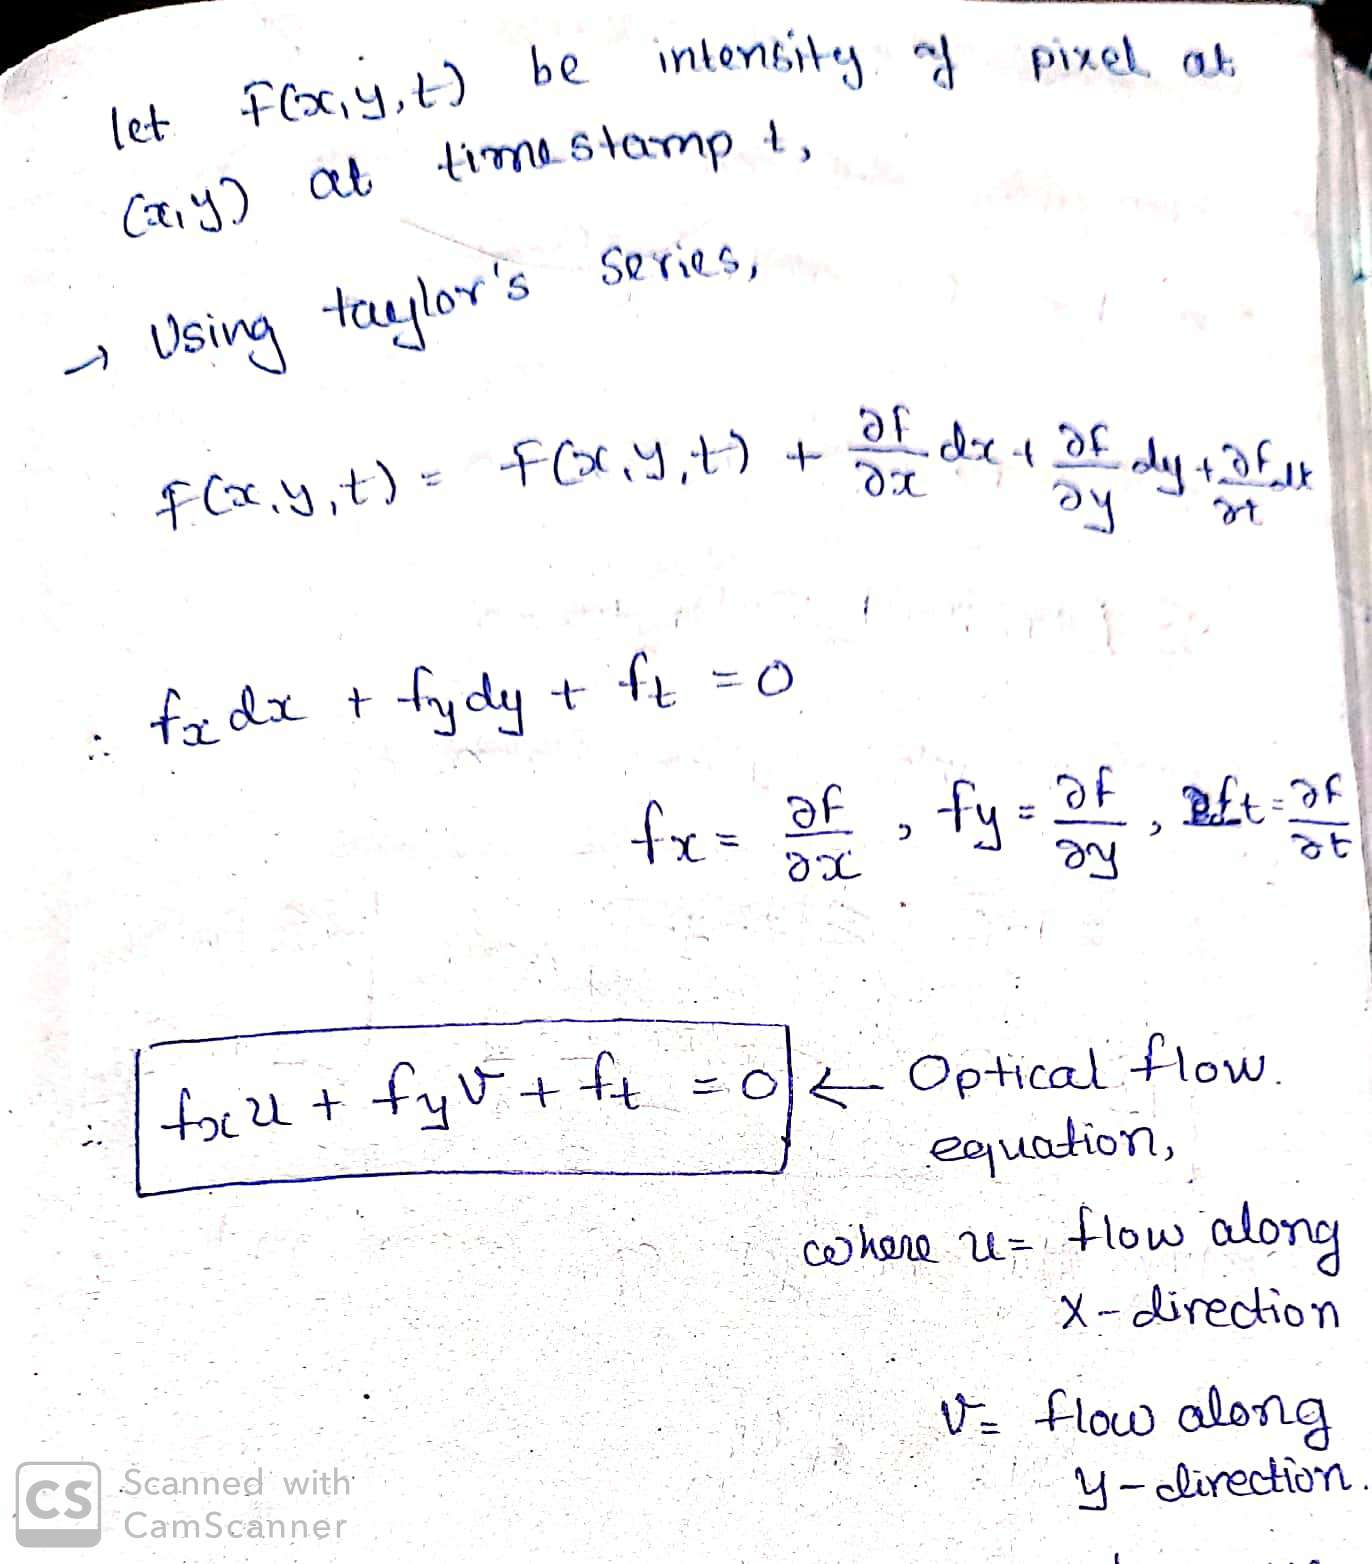 let F(x,y,t) be intensity of pixel at
(x,y) at timestamp t,
→ Using taylor's series,
F(x,y,t) = F(x,y,t) + ∂f/∂x dx + ∂f/∂y dy + ∂f/∂t dt
∴ fx dx + fy dy + ft = 0
fx = ∂f/∂x , fy = ∂f/∂y , ft = ∂f/∂t
∴ fx u + fy v + ft = 0 ← Optical flow.
equation,
where u = flow along
x-direction
v = flow along
y-direction.
CS Scanned with
CamScanner